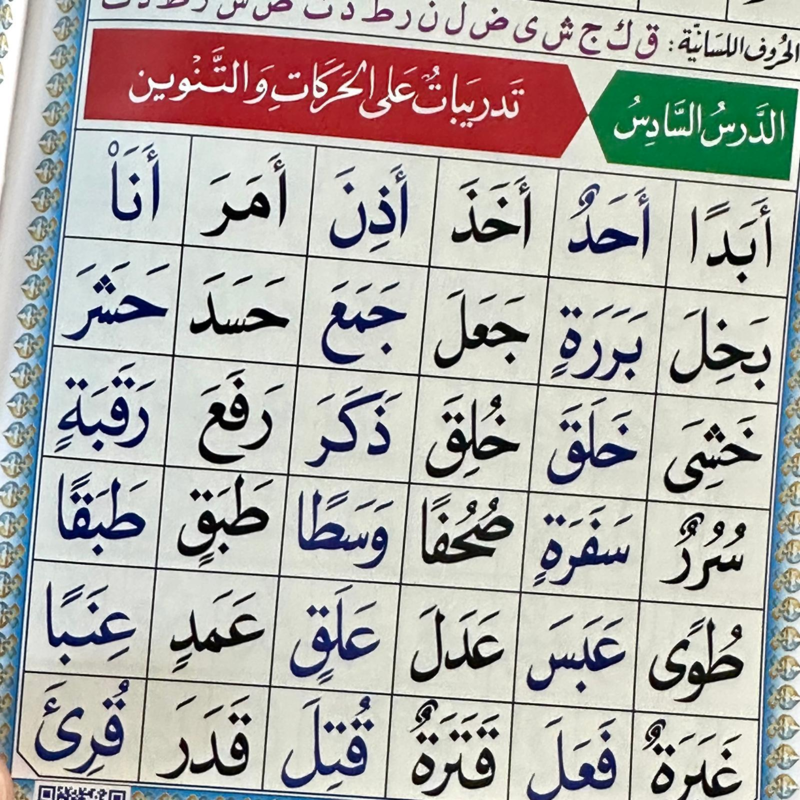 الحُرُوف اللسَانِيَّة: ق ك ج ش ي ض ل ن ر ط د ت ص س ز ظ ذ ث
الدَّرسُ السَّادِسُ
تَدرِيبَاتٌ عَلى الحَرَكَاتِ وَالتَّنْوِين
أَبَدًا أَحَدٌ أَخَذَ أَذِنَ أَمَرَ أَنَا۠
بَخِلَ بَرَرَةٍ جَعَلَ جَمَعَ حَسَدَ حَشَرَ
خَشِىَ خَلَقَ خُلِقَ ذَكَرَ رَفَعَ رَقَبَةٍ
سُرُرٌ سَفَرَةٍ صُحُفًا وَسَطًا طَبَقٍ طَبَقًا
طُوًى عَبَسَ عَدَلَ عَلَقٍ عَمَدٍ عِنَبًا
غَبَرَةٌ فَعَلَ قَتَرَةٌ قُتِلَ قَدَرَ قُرِئَ